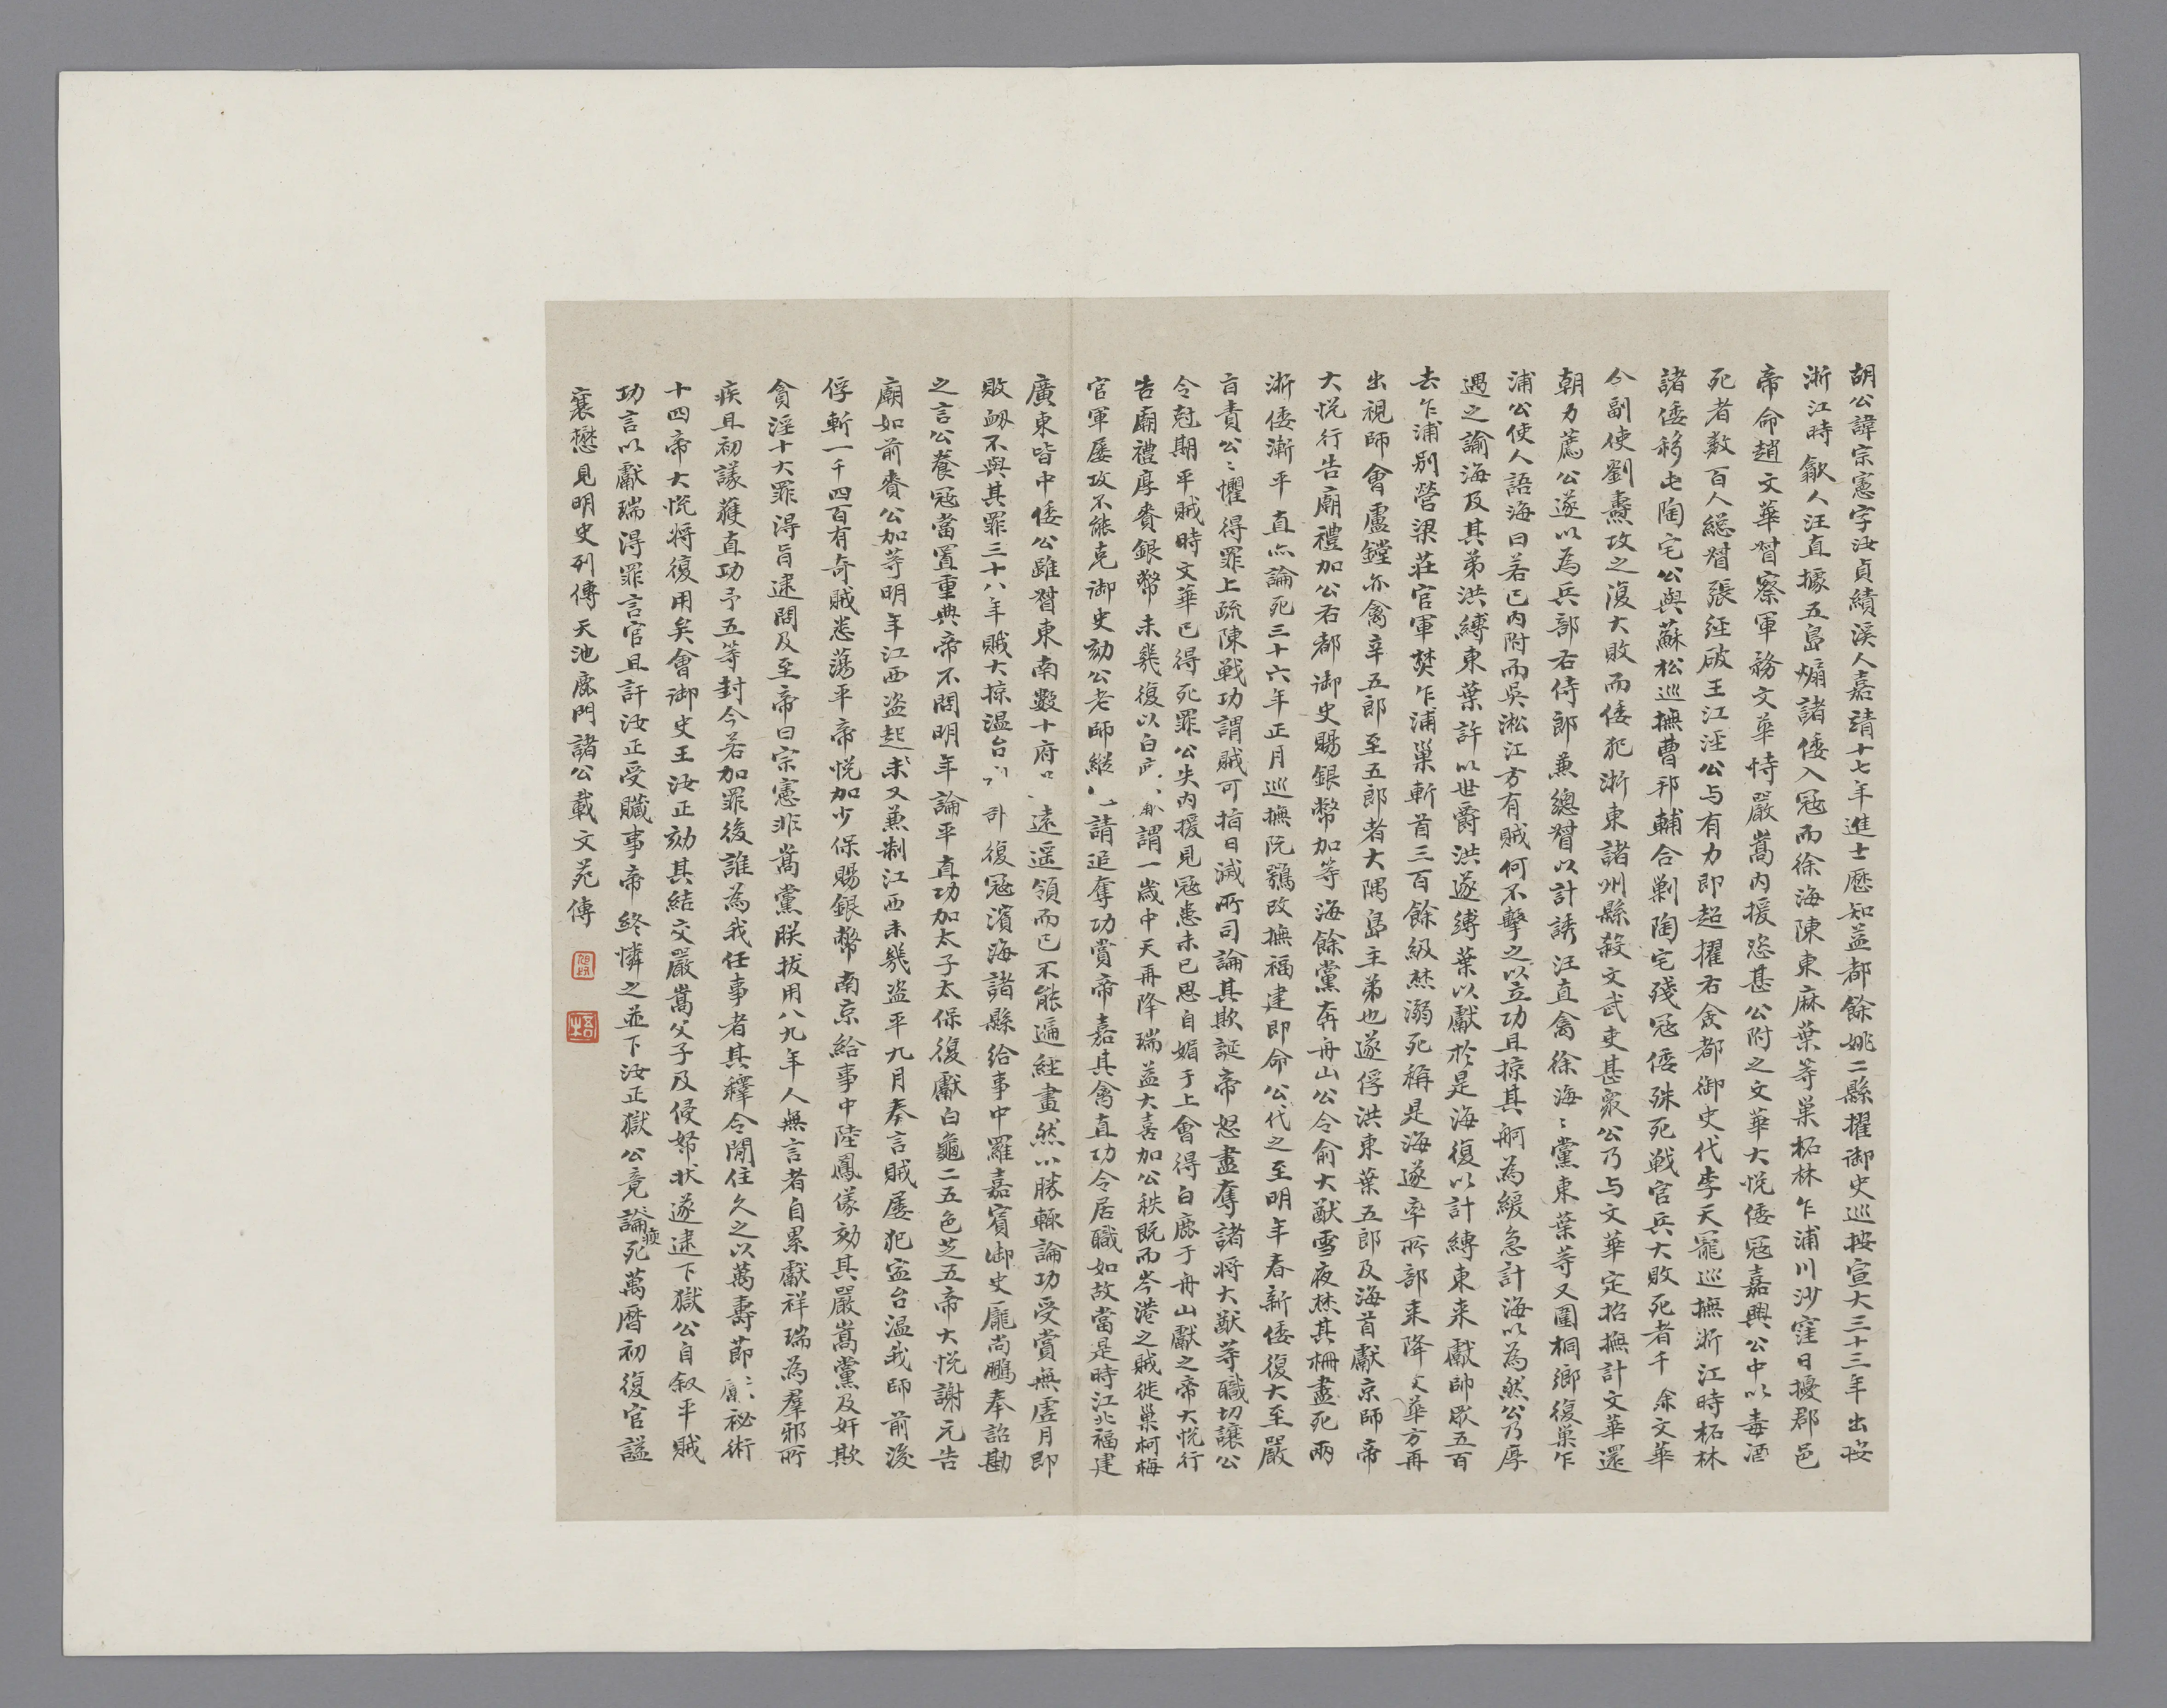 胡公諱宗憲字汝貞績溪人嘉靖十七年進士歷知益都餘姚二縣擢御史巡按宣大三十三年出按
浙江時歙人汪直據五島煽諸倭入冦而徐海陳東麻葉等巢柘林乍浦川沙窪日擾郡邑
帝命趙文華督察軍務文華恃嚴嵩内援恣甚公附之文華大悅倭冦嘉興公中以毒酒
死者数百人緫督張經破王江涇公与有力即超擢右僉都御史代李天寵巡撫浙江時柘林
諸倭移屯陶宅公與蘇松巡撫曹邦輔合剿陶宅殘冦倭殊死戦官兵大敗死者千餘文華
令副使劉燾攻之復大敗而倭犯浙東諸州縣殺文武吏甚衆公乃与文華定招撫計文華還
朝力薦公遂以為兵部右侍郎兼總督以計誘汪直禽徐海〻黨東葉等又圍桐鄉復巢乍
浦公使人語海曰若已内附而吳淞江方有賊何不擊之以立功且掠其舸為緩急計海以為然公乃厚
遇之諭海及其弟洪縛東葉許以世爵洪遂縛葉以獻於是海復以計縛東来獻帥眾五百
去乍浦别營梁莊官軍焚乍浦巢斬首三百餘級焚溺死稱是海遂率所部来降文華方再
出視師會盧鏜亦禽辛五郎至五郎者大隅島主弟也遂俘洪東葉五郎及海首獻京師帝
大悅行告廟禮加公右都御史賜銀幣加等海餘黨奔舟山公令俞大猷雪夜焚其柵盡死兩
浙倭漸平直亦論死三十六年正月巡撫阮鶚改撫福建即命公代之至明年春新倭復大至嚴
旨責公〻懼得罪上疏陳戦功謂賊可指日滅所司論其欺誕帝怒盡奪諸将大猷等職切讓公
令尅期平賊時文華已得死罪公失内援見冦患未已思自媚于上會得白鹿于舟山獻之帝大悅行
告廟禮厚賚銀幣未幾復以白謂一歲中天再降瑞益大喜加公秩既而岑港之賊徙巢柯梅
官軍屢攻不能克御史劾公老師縱請追奪功賞帝嘉其禽直功令居職如故當是時江北福建
廣東皆中倭公雖督東南數十府遠遥領而已不能遍經畫然小勝輒論功受賞無虛月即
敗衂不與其罪三十八年賊大掠温台復冦濱海諸縣給事中羅嘉賓御史龐尚鵬奉詔勘
之言公養冦當置重典帝不問明年論平直功加太子太保復獻白龜二五色芝五帝大悅謝元告
廟如前賚公加等明年江西盗起又兼制江西未幾盗平九月奏言賊屢犯寍台温我師前後
俘斬一千四百有奇賊悉蕩平帝悅加少保賜銀幣南京給事中陸鳳儀劾其嚴嵩黨及奸欺
貪淫十大罪得旨逮問及至帝曰宗憲非嵩黨朕拔用八九年人無言者自累獻祥瑞為羣邪所
疾且初議獲直功予五等封今若加罪後誰為我任事者其釋令閒住久之以萬壽節獻秘術
十四帝大悅将復用矣會御史王汝正劾其結交嚴嵩父子及侵帑状遂逮下獄公自叙平賊
功言以獻瑞得罪言官且訐汝正受贜事帝終憐之並下汝正獄公竟論瘐死萬曆初復官謚
襄懋見明史列傳天池鹿門諸公載文苑傳